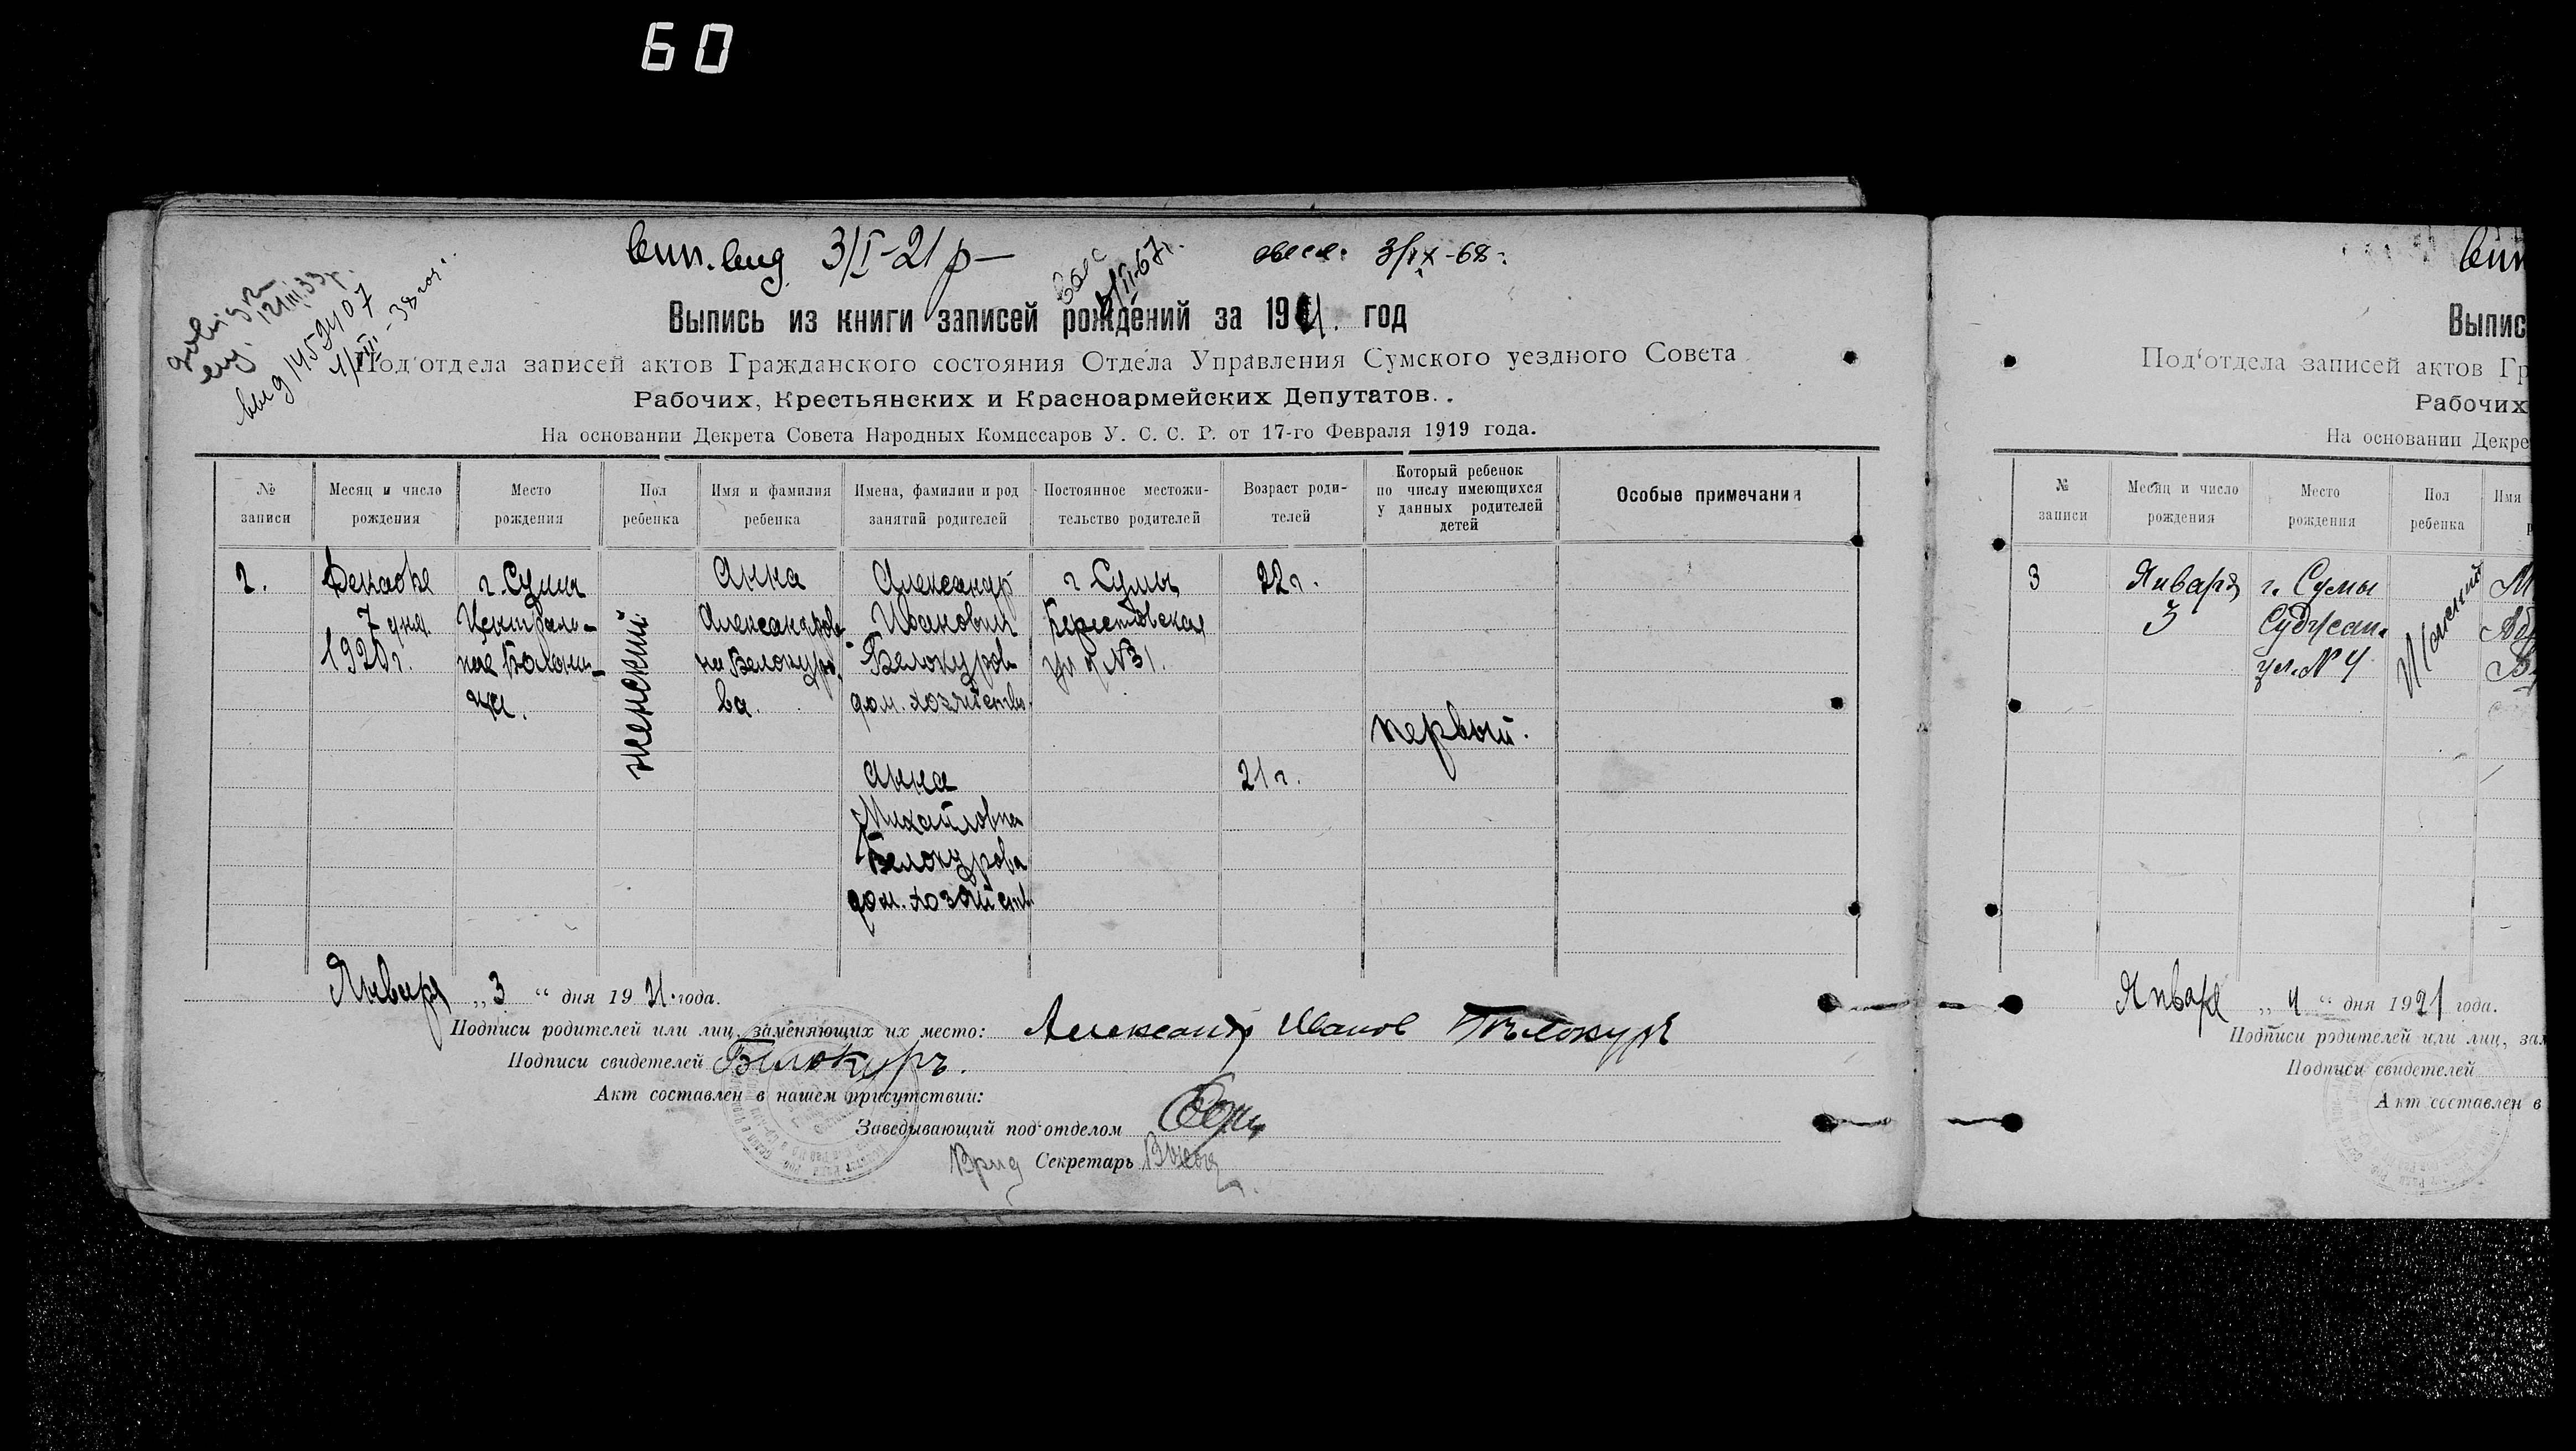 60
вип. вид. 3/I-21 р
3/IX-68.
Выпись из книги записей рождений за 1921. год
Под'отдела записей актов Гражданского состояния Отдела Управления Сумского уездного Совета
Рабочих, Крестьянских и Красноармейских Депутатов.
На основании Декрета Совета Народных Комиссаров У. С. С. Р. от 17-го Февраля 1919 года.
№ записи
Месяц и число рождения
Место рождения
Пол ребенка
Имя и фамилия ребенка
Имена, фамилии и род занятий родителей
Постоянное местожительство родителей
Возраст родителей
Который ребенок по числу имеющихся у данных родителей детей
Особые примечания
2.
Декабре
7 дня
1920 г.
г. Сумы
Централь-
ная Больни-
ца.
женский
Анна
Александров-
на Белокуро-
ва.
Александр
Иванович
Белокуров
дом. хозяйство.
г. Сумы
ул. № 31.
22 г.
Анна
Михайловна
Белокурова
дом. хозяйств.
21 г.
первый.
Января „ 3 “ дня 1921 года.
Подписи родителей или лиц, заменяющих их место: Александр Иванов Белокуръ
Подписи свидетелей Билокуръ.
Акт составлен в нашем присутствии:
Заведывающий под'отделом
Врид Секретарь
Выпис
Под'отдела записей актов Гр
Рабочих
На основании Декре
№ записи
Месяц и число рождения
Место рождения
Пол ребенка
Имя
3
Января
3
г. Сумы
Суджан.
ул. № 4
Мужской
Января „ 4 “ дня 1921 года.
Подписи родителей или лиц, зам
Подписи свидетелей
Акт составлен в